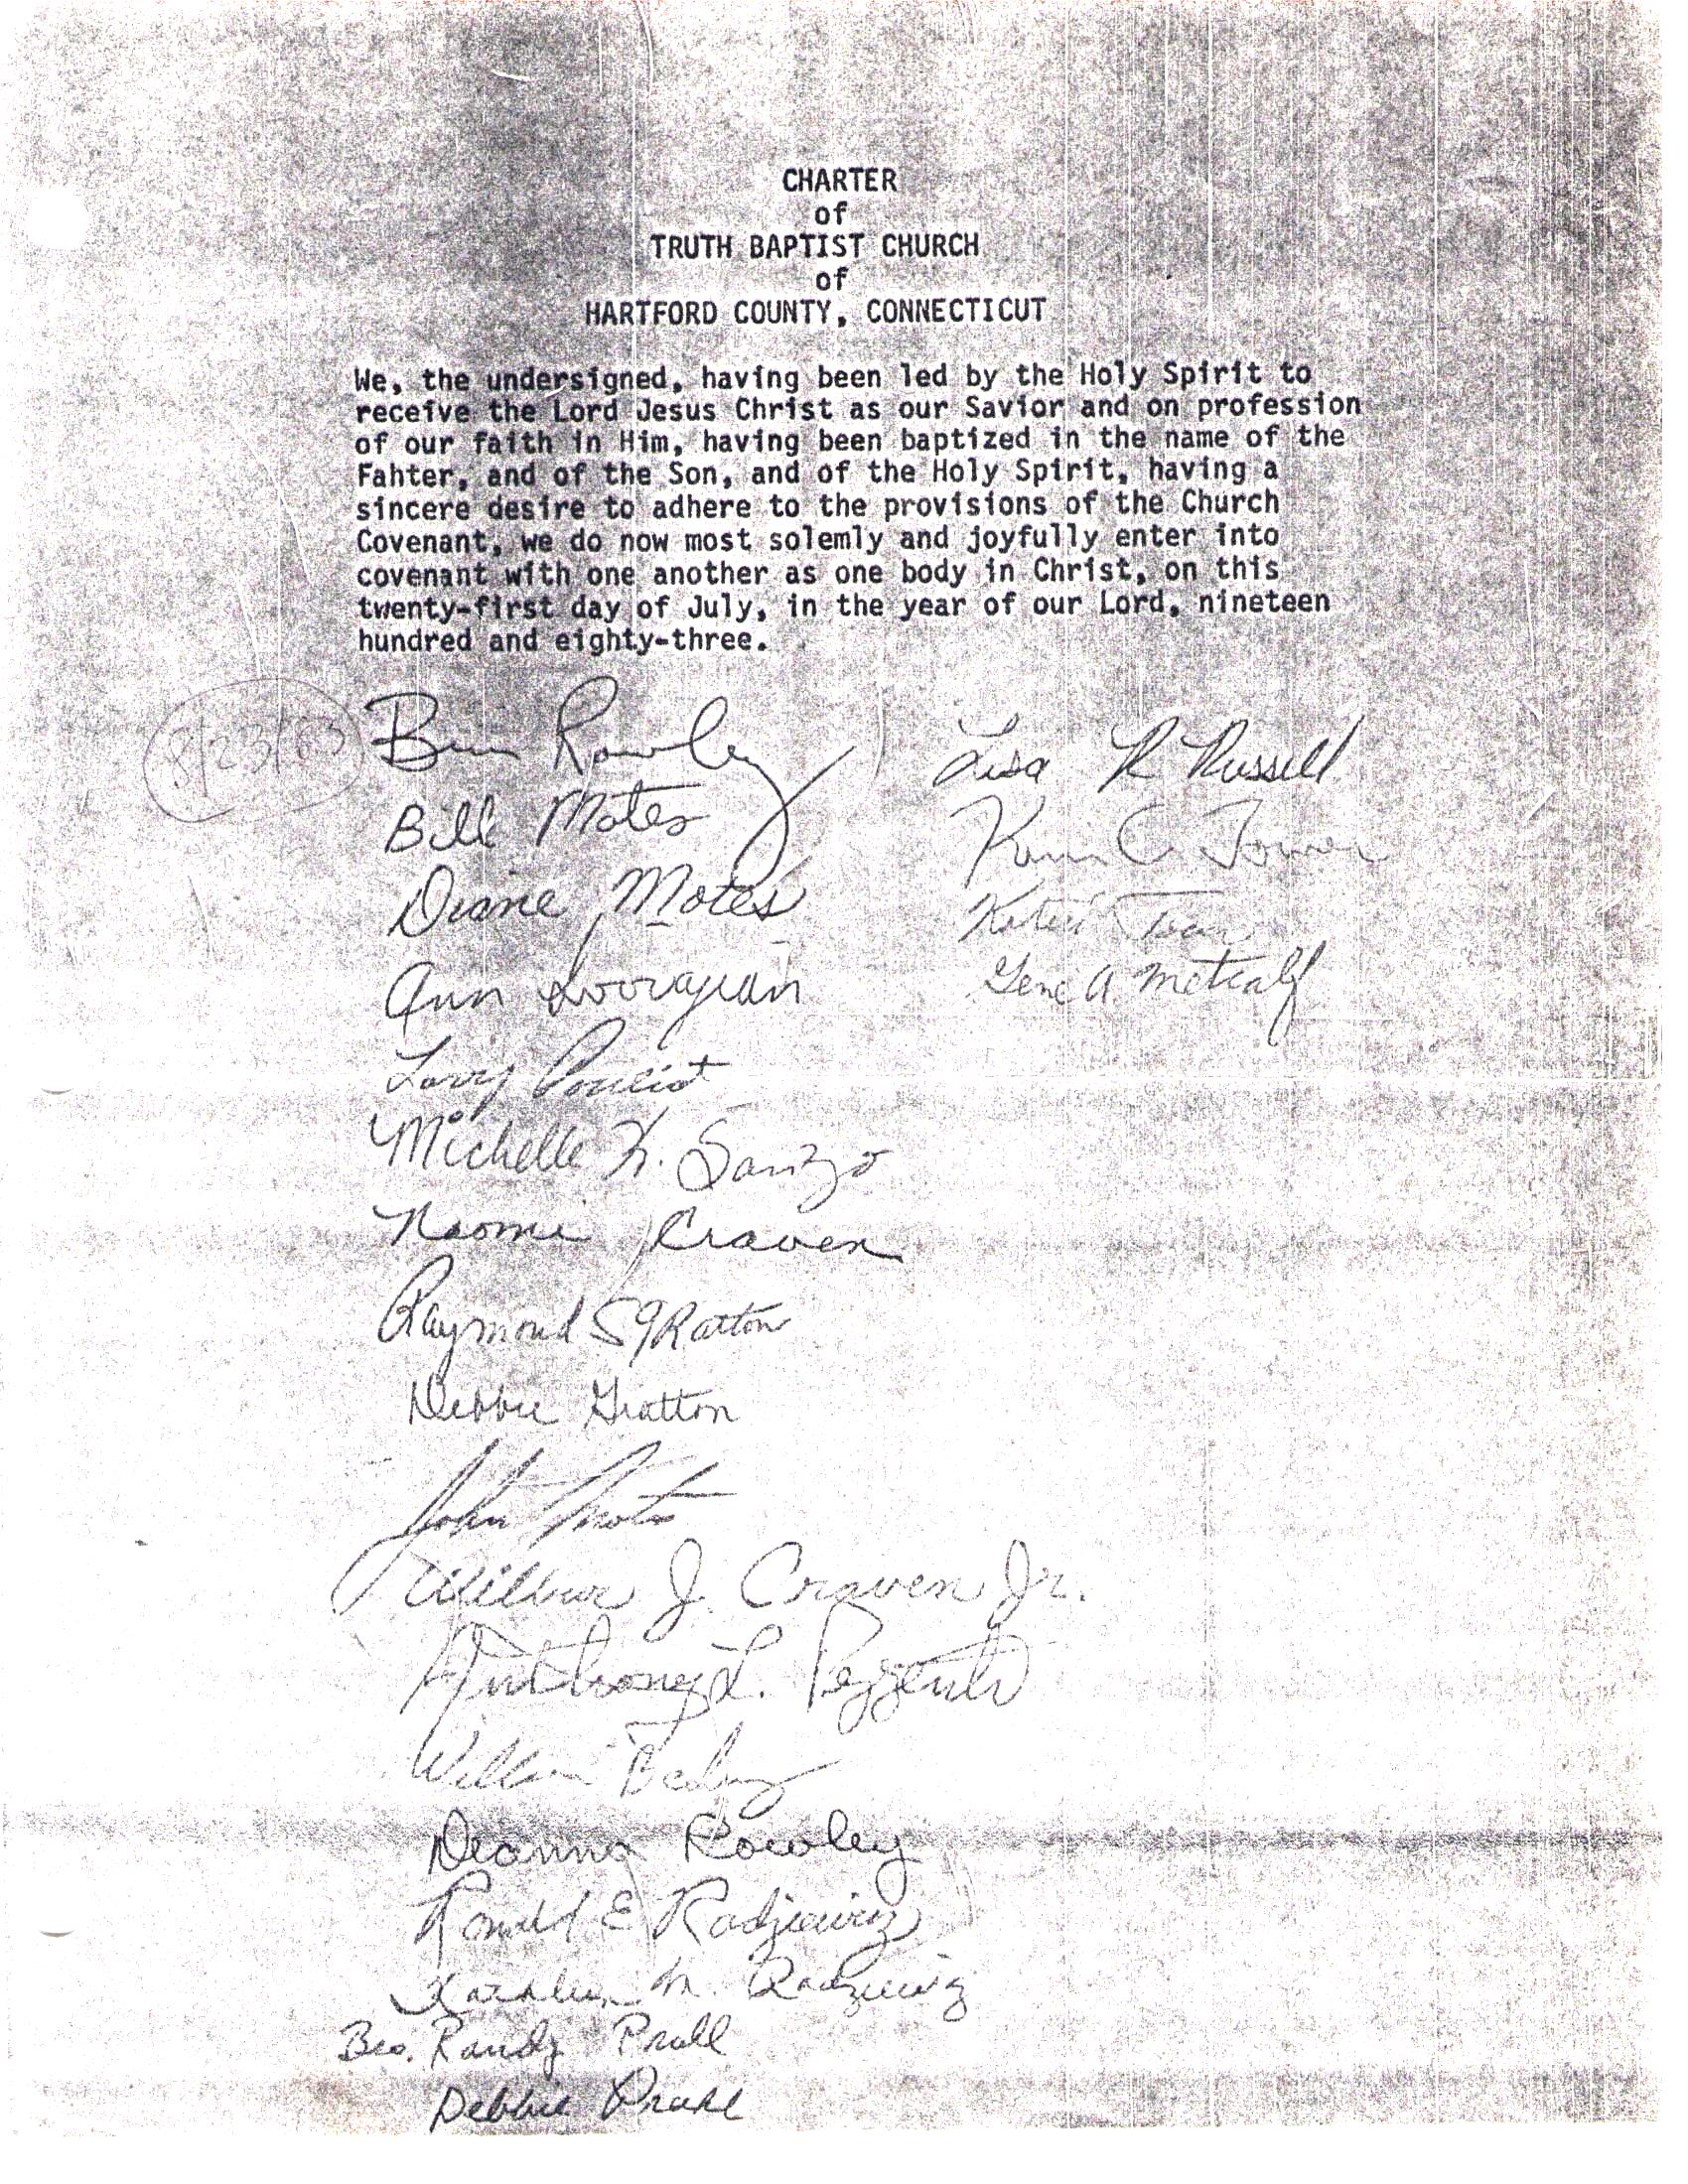 CHARTER
of
TRUTH BAPTIST CHURCH
of
HARTFORD COUNTY, CONNECTICUT
We, the undersigned, having been led by the Holy Spirit to
receive the Lord Jesus Christ as our Savior and on profession
of our faith in Him, having been baptized in the name of the
Fahter, and of the Son, and of the Holy Spirit, having a
sincere desire to adhere to the provisions of the Church
Covenant, we do now most solemly and joyfully enter into
covenant with one another as one body in Christ, on this
twenty-first day of July, in the year of our Lord, nineteen
hundred and eighty-three.
8/23/83
Rowley
Bill Motes
Diane Motes
Ann
Larry Pouliot
Michelle K. Sanzo
Naomi Craven
Raymond S GRatton
Debbie Gratton
John Motes
Wilbur J. Craven Jr.
Anthony L. Pezzente
William
Deanna Rowley
Ronald E Radziewicz
Kathleen M. Radziewicz
Bro. Randy Prall
Debbie Prall
Lisa R Russell
C. Tower
Gene A Metcalf